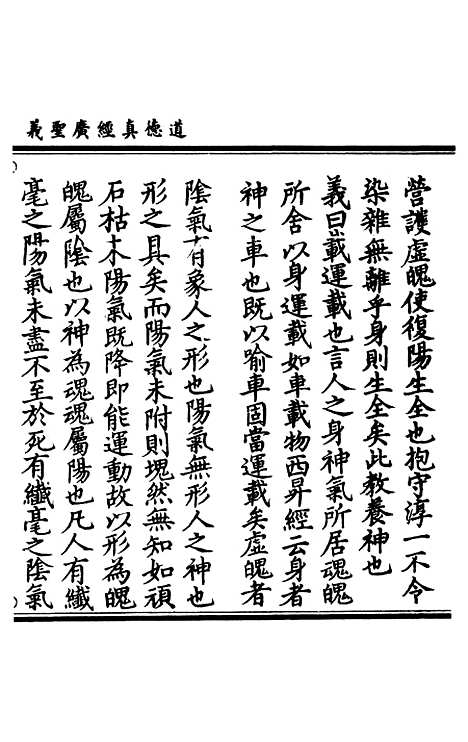 道德真經廣聖義
營護虛魄使復陽生全也抱守淳一不令
染雜無離乎身則生全矣此教養神也
義曰載運載也言人之身神氣所居魂魄
所舍以身運載如車載物西昇經云身者
神之車也既以喻車固當運載矣虛魄者
陰氣有象人之形也陽氣無形人之神也
形之具矣而陽氣未附則塊然無知如頑
石枯木陽氣既降即能運動故以形為魄
魄屬陰也以神為魂魂屬陽也凡人有纖
毫之陽氣未盡不至於死有纖毫之陰氣